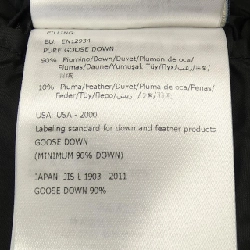 FILLING
EU EN12934
PURE GOOSE DOWN
90% Piumino/Down/Duvet/Plumon de oca/
Plumas/Daune/
10% Piuma/Feather/Duvet/Pluma de oca/Penas/
Feder/
USA: USA - 2000
Labeling standard for down and feather products
GOOSE DOWN
(MINIMUM 90% DOWN)
JAPAN: JIS L 1903 - 2011
GOOSE DOWN 90%